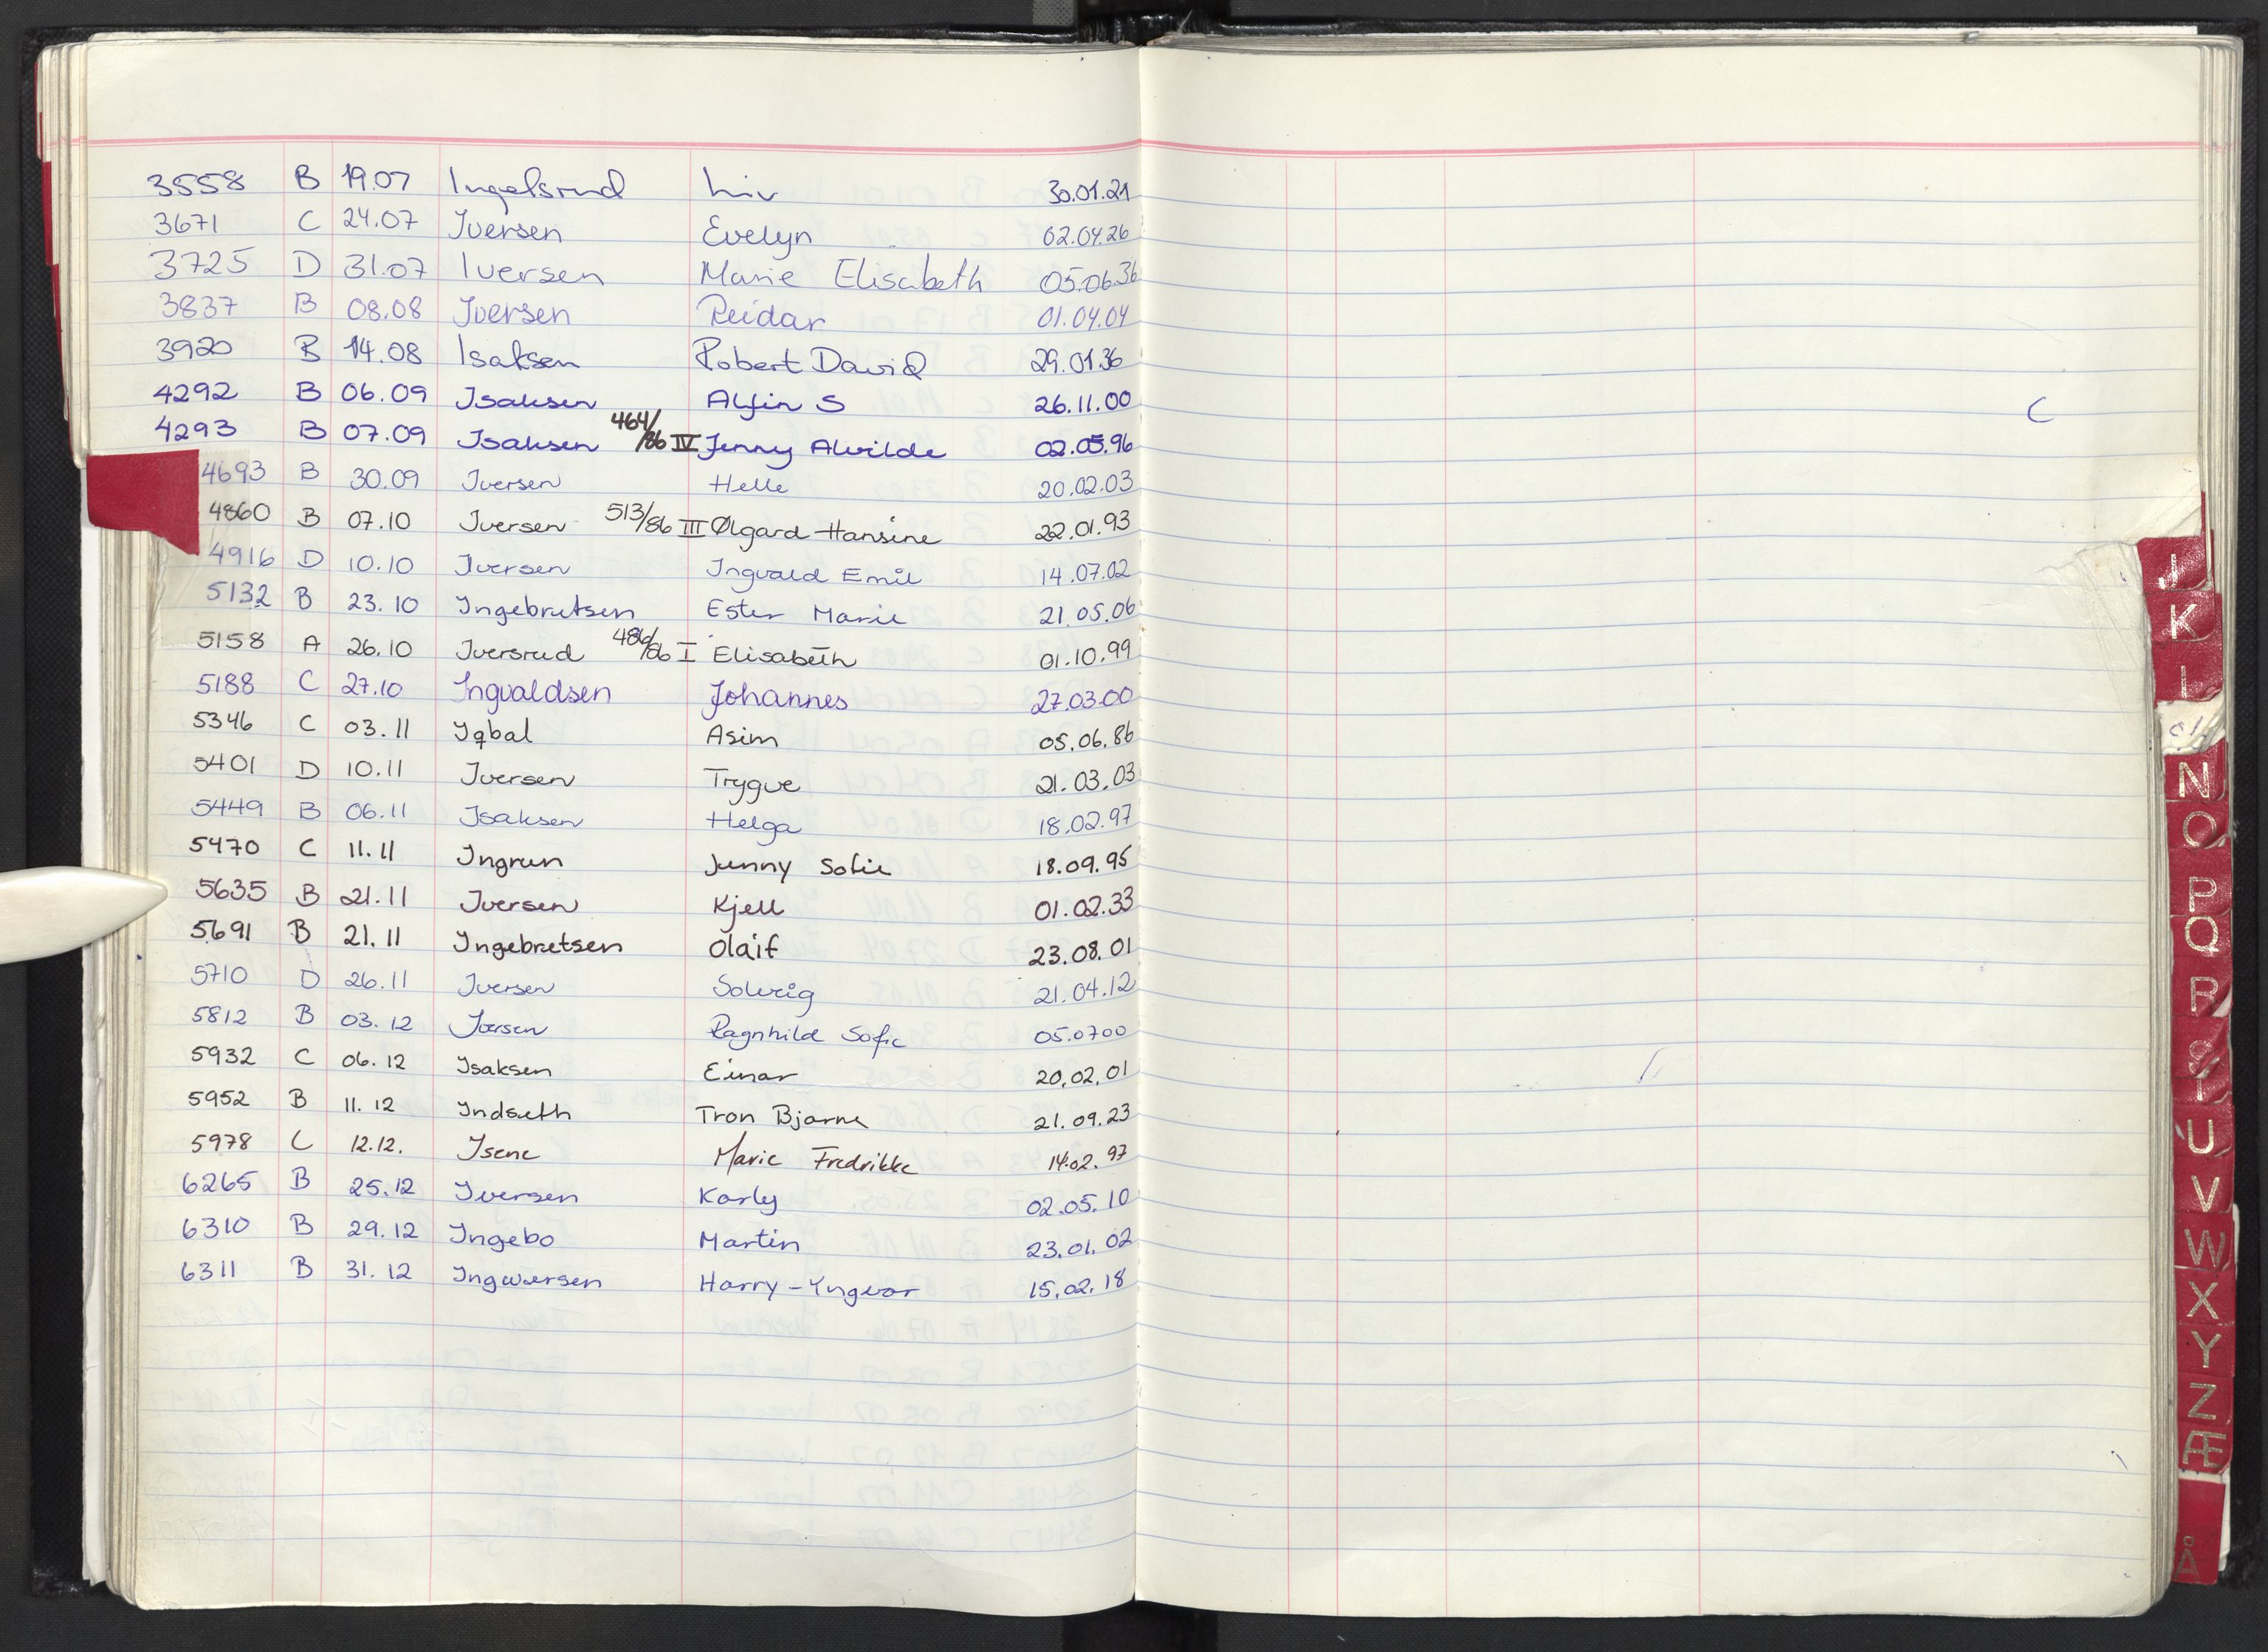 3558 B 19.07 Ingelsrud Liv 30.01.21
3671 C 24.07 Iversen Evelyn 02.04.26
3725 D 31.07 Iversen Marie Elisabeth 05.06.36
3837 B 08.08 Iversen Reidar 01.04.04
3920 B 14.08 Isaksen Robert David 29.01.36
4292 B 06.09 Isaksen Alfin S 26.11.00
4293 B 07.09 Isaksen 464/86 IV Jenny Alvilde 02.05.96
4693 B 30.09 Iversen Helle 20.02.03
4860 B 07.10 Iversen 513/86 III Ølgard Hansine 22.01.93
4916 D 10.10 Iversen Ingvald Emil 14.07.02
5132 B 23.10 Ingebretsen Ester Marie 21.05.06
5158 A 26.10 Iversrud 486/86 I Elisabeth 01.10.99
5188 C 27.10 Ingvaldsen Johannes 27.03.00
5346 C 03.11 Iqbal Asim 05.06.86
5401 D 10.11 Iversen Trygve 21.03.03
5449 B 06.11 Isaksen Helga 18.02.97
5470 C 11.11 Ingrun Jenny Sofie 18.09.95
5635 B 21.11 Iversen Kjell 01.02.33
5691 B 21.11 Ingebretsen Olaif 23.08.01
5710 D 26.11 Iversen Solveig 21.04.12
5812 B 03.12 Iversen Ragnhild Sofie 05.07.00
5932 C 06.12 Isaksen Einar 20.02.01
5952 B 11.12 Indseth Tron Bjarne 21.09.23
5978 C 12.12. Isene Marie Fredrikke 14.02.97
6265 B 25.12 Iversen Karly 02.05.10
6310 B 29.12 Ingebo Martin 23.01.02
6311 B 31.12 Ingwersen Harry-Yngvar 15.02.18
C
J
K
L
N
O
P
Q
R
S
T
U
V
W
X
Y
Z
Æ
Å